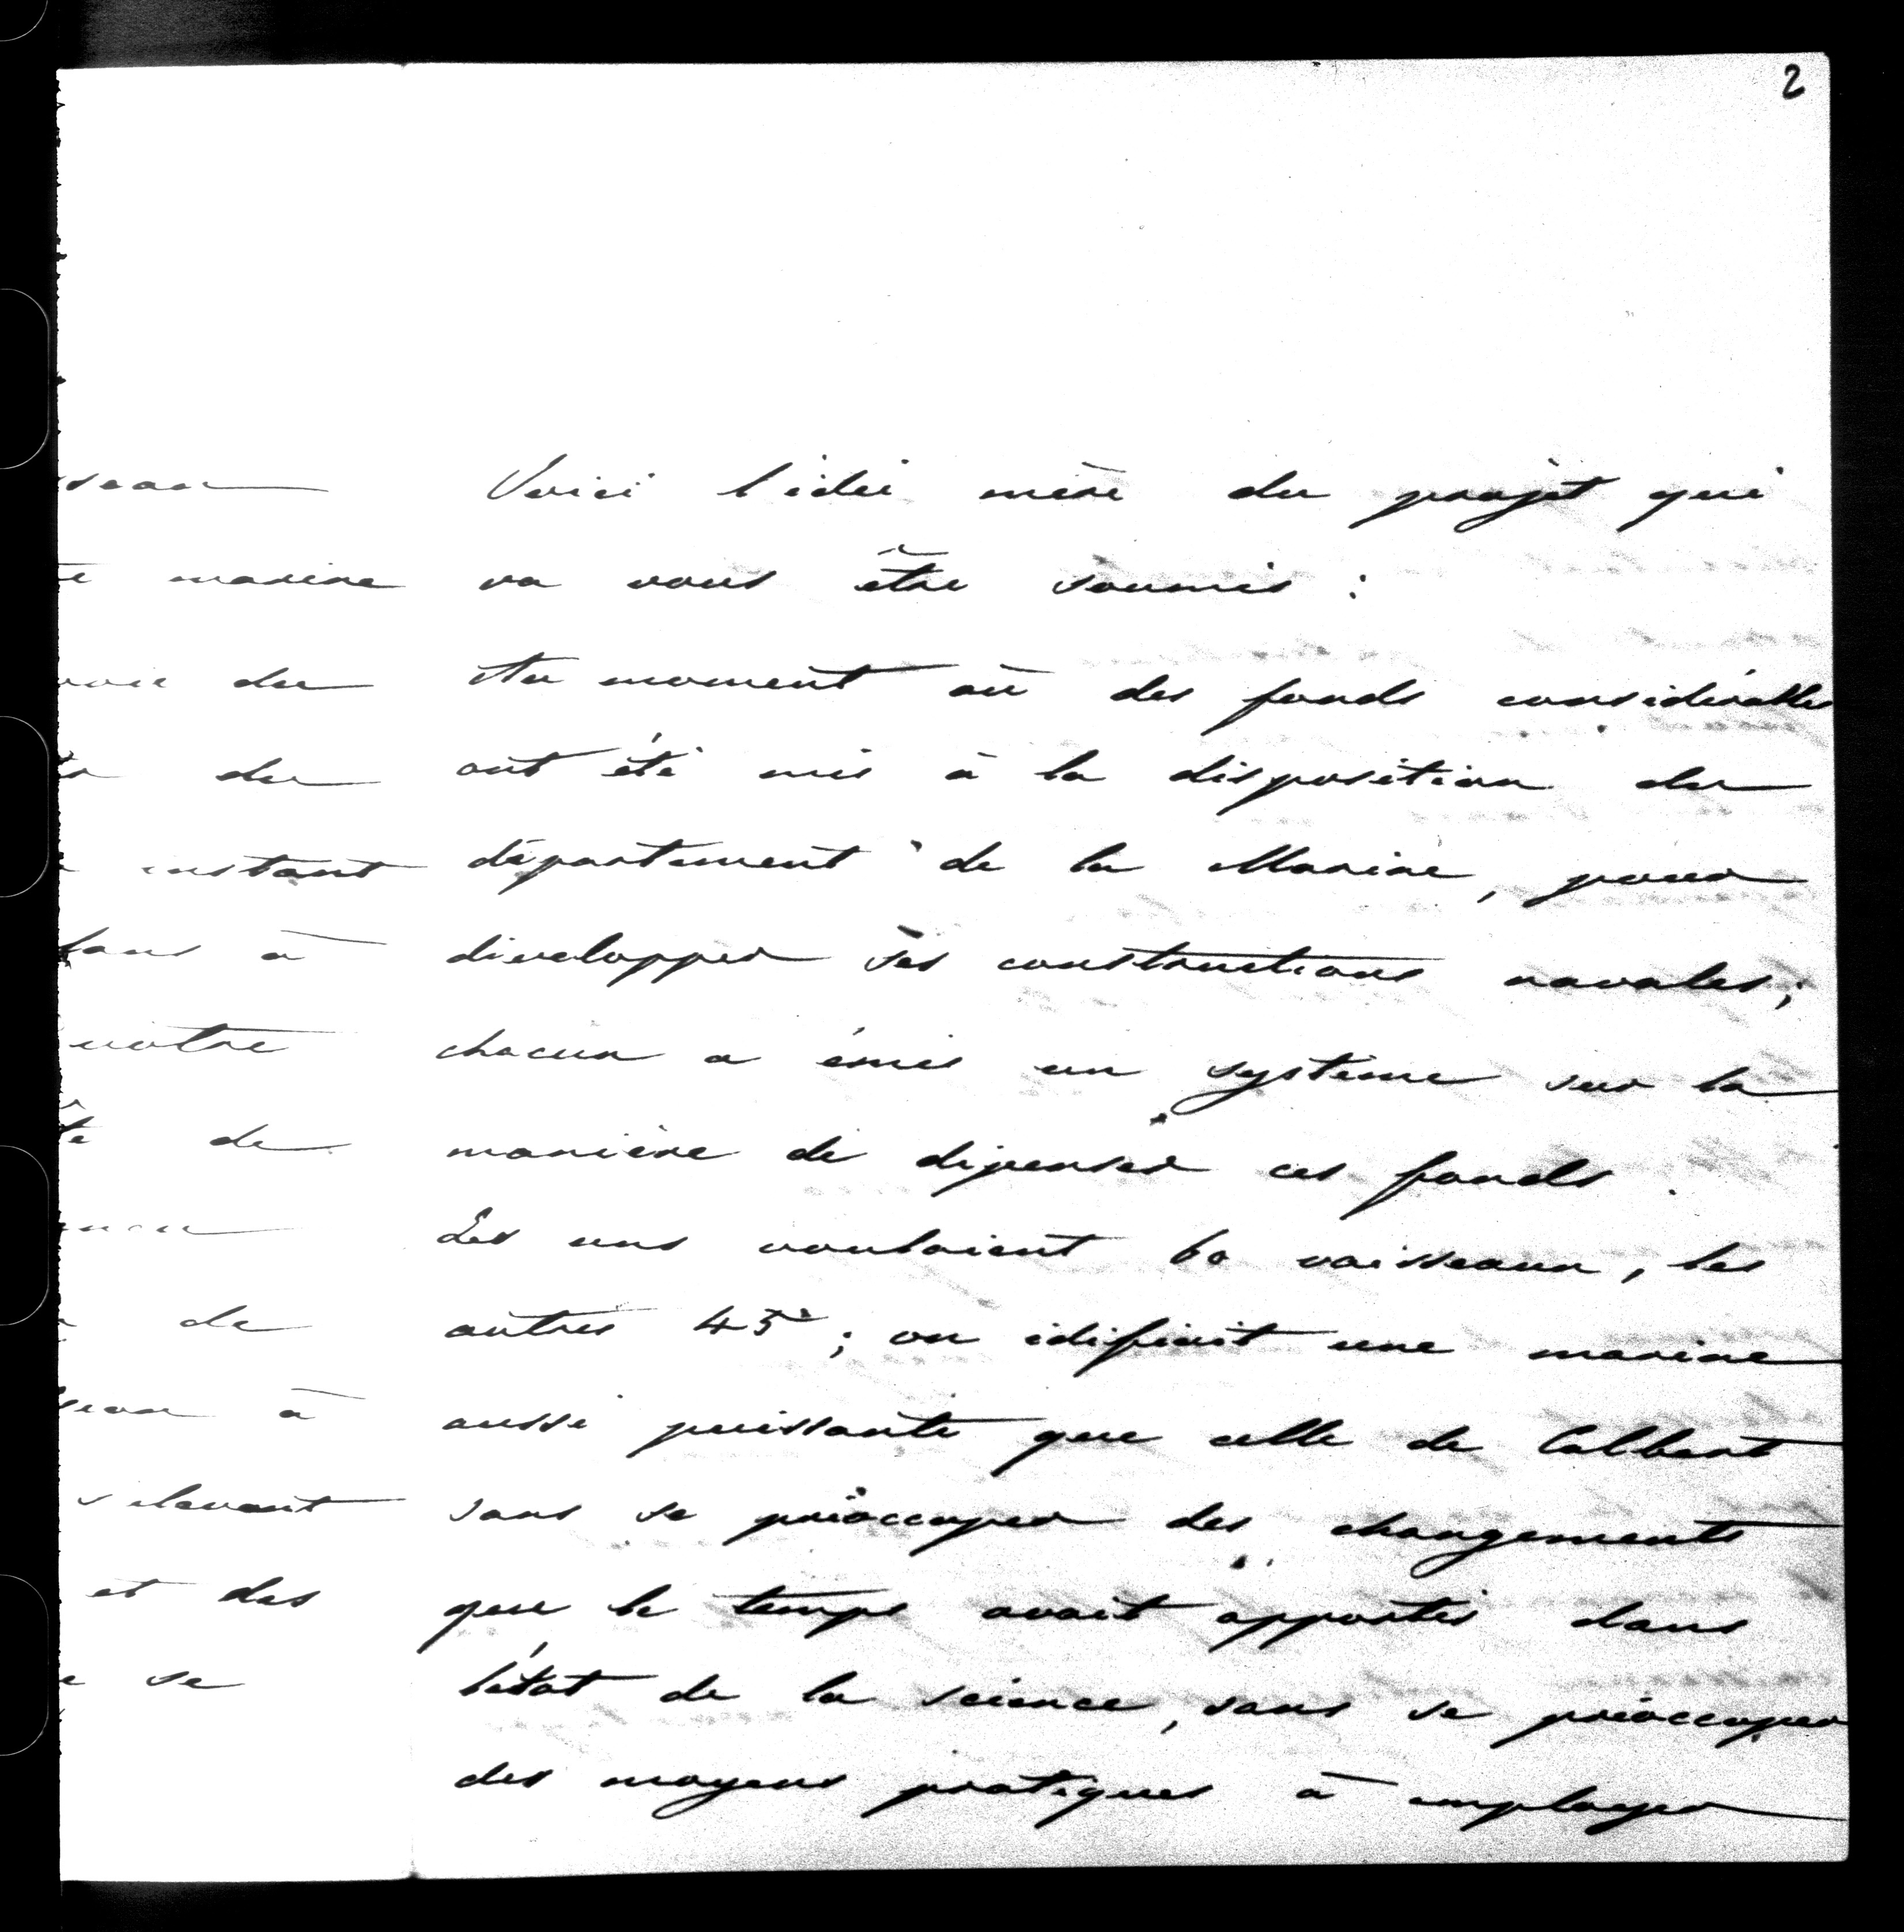 2
Voici l'idée mère du projet qui
va vous être soumis :
Au moment où des fonds considérables
ont été mis à la disposition du
département de la Marine, pour
développer ses constructions navales ;
chacun a émis un système sur la
manière de dépenser ces fonds.
Les uns voulaient 60 vaisseaux, les
autres 45 ; on édifiait une marine
aussi puissante que celle de Colbert
sans se préoccuper des changements
que le temps avait apportés dans
l'état de la science, sans se préoccuper
des moyens pratiques à employer
marine
du
du
instant
à
notre
de
de
à
et des
se